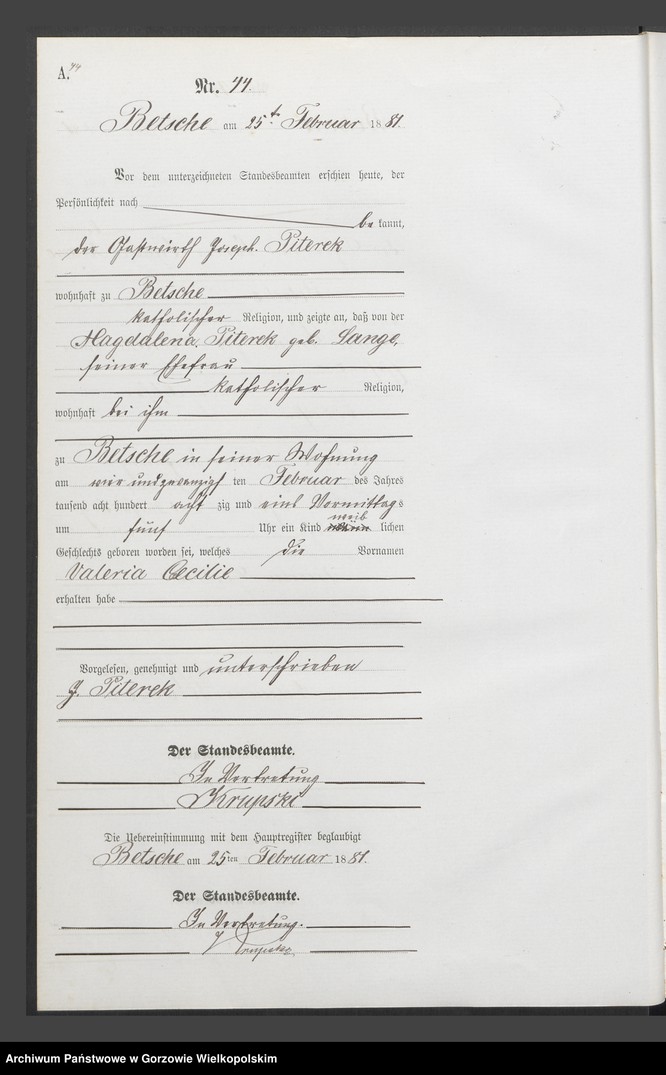 A. 44
Nr. 44.
Betsche am 25t. Februar 1881.
Vor dem unterzeichneten Standesbeamten erschien heute, der
Persönlichkeit nach
bekannt,
der Gastwirth Joseph Piterek
wohnhaft zu Betsche
katholischer Religion, und zeigte an, daß von der
Magdalena Piterek geb. Lange,
seiner Ehefrau
katholischer Religion,
wohnhaft bei ihm
zu Betsche in seiner Wohnung
am vier und zwanzigsten Februar des Jahres
tausend acht hundert acht zig und eins Vormittags
um fünf Uhr ein Kind männ weib lichen
Geschlechts geboren worden sei, welches die Vornamen
Valeria Cecilie
erhalten habe
Vorgelesen, genehmigt und unterschrieben
J. Piterek
Der Standesbeamte.
In Vertretung
Krupski
Die Uebereinstimmung mit dem Hauptregister beglaubigt
Betsche am 25ten Februar 1881.
Der Standesbeamte.
In Vertretung.
Krupski
Archiwum Państwowe w Gorzowie Wielkopolskim